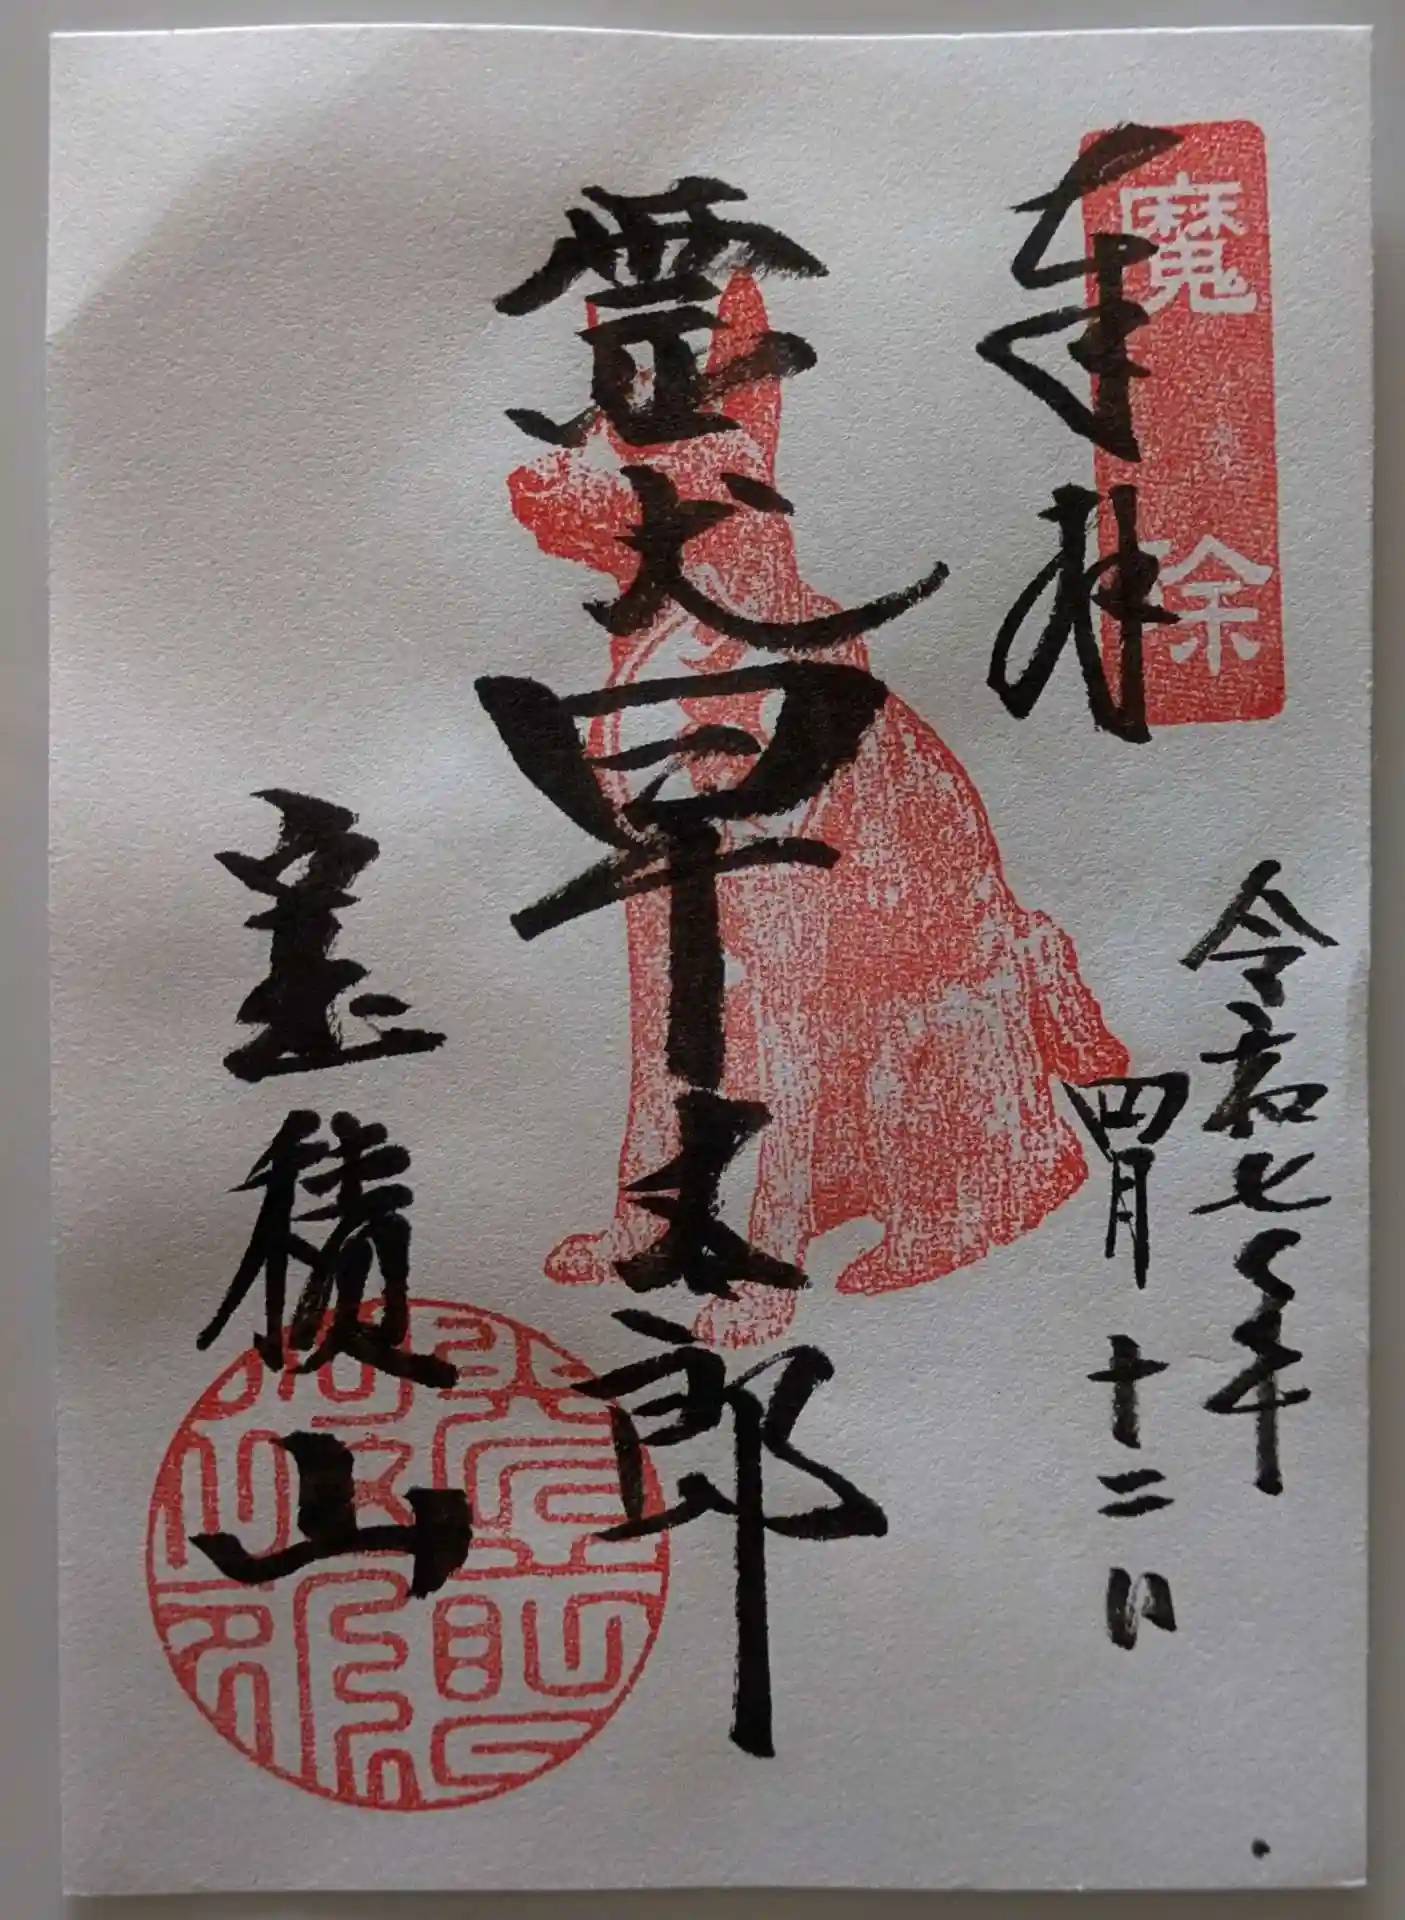 魔 除
奉拝
令和七年
四月十二日
霊犬早太郎
宝積山